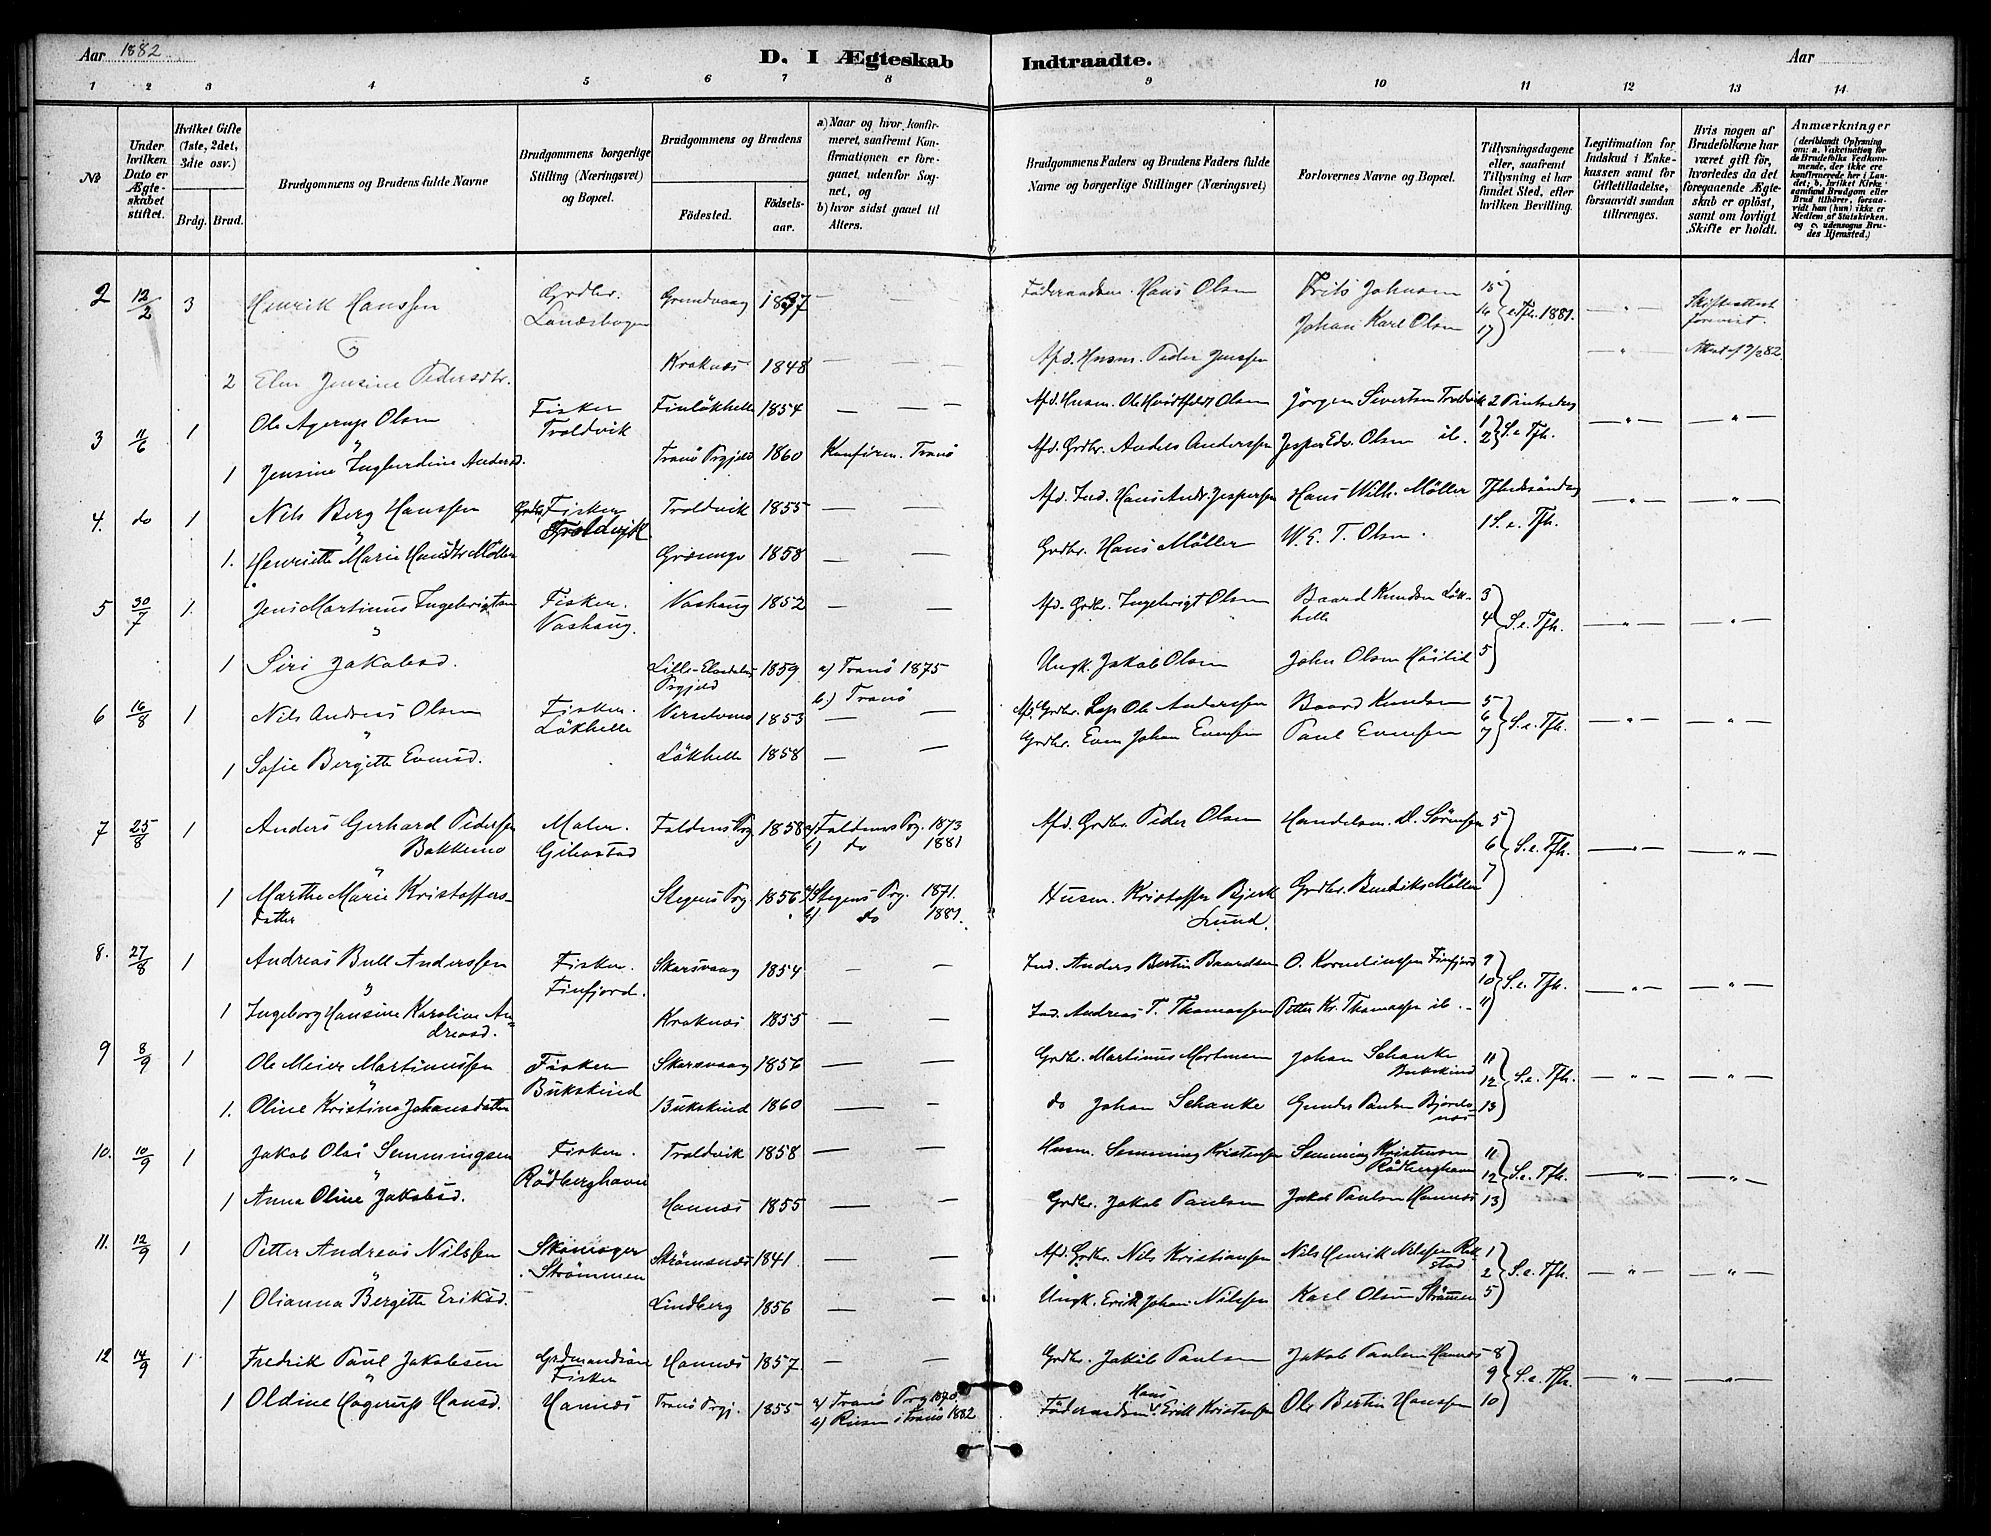 Aar 1882
D. I Ægteskab Indtraadte.
Aar
1 2 3 4 5 6 7 8 9 10 11 12 13 14
№
Under hvilken Dato er Ægteskabet stiftet.
Hvilket Gifte (1ste, 2det, 3die osv.)
Brdg. Brud.
Brudgommens og Brudens fulde Navne
Brudgommens borgerlige Stilling (Næringsvei) og Bopæl.
Brudgommens og Brudens
Födested.
Födselsaar.
a) Naar og hvor konfirmeret, saafremt Konfirmationen er foregaaet udenfor Sognet, og
b) hvor sidst gaaet til Alters.
Brudgommens Faders og Brudens Faders fulde Navne og borgerlige Stillinger (Næringsvei)
Forlovernes Navne og Bopæl.
Tillysningsdagene eller, saafremt Tillysning ei har fundet Sted, efter hvilken Bevilling.
Legitimation for Indskud i Enkekassen samt for Giftetilladelse, forsaavidt saadan tiltrænges.
Hvis nogen af Brudefolkene har været gift för, hvorledes da det foregaaende Ægteskab er oplöst, samt om lovligt Skifte er holdt.
Anmærkninger
(deriblandt Oplysning om: a. Vakcination for de Brudefolks Vedkommende, der ikke ere konfirmerede her i Landet; b. hvilket Kirkesamfund Brudgom eller Brud tilhörer, forsaavidt han (hun) ikke er Medlem af Statskirken, og c. udensogns Brudes Hjemsted.)
2 12/2 3 Henrik Hanssen Grdbr. Grundvaag 1837 — — Föderaadsm. Hans Olsen Frits Johnsen 15
Johan Karl Olsen 16 17 e. Tfh. 1881. — " — Skifteattest forevist.
2 Elen Jensine Pedersdtr. Kraknæs 1848 — — Afd. Husm. Peder Jenssen — " —
3 11/6 1 Ole Agerup Olsen Fisker Troldvik Finlökhelle 1854 — — — Afd. Husm. Ole Hvidtfeldt Olsen Jörgen Sivertsen Troldvik 2 Pintsedag — " — — " —
1 Jensine Ingburdine Andersd. Tranö Prgjeld 1860 Konfirm. Tranö Afd. Grdbr. Anders Anderssen Jesper Edv. Olsen ib. 1 2 S. e. Tfh.
4. do 1 Nils Berg Hanssen Grdbr. Fisker Troldvik Troldvik 1855 — — Afd. Ind. Hans Andr. Jespersen Hans Wilh. Möller — " — — " —
1. Henriette Marie Hansdtr Möller 1858 — — Grdbr. Hans Möller W. E. T. Olsen. 1 S. e. Tfh.
5 30/7 1. Jens Martinus Ingebrigtsen Fisker. Vashaug. Vashaug 1852 — — Afd. Grdbr. Ingebrigt Olsen Baard Knudsen Lökhelle 3 4 5 S. e. Tfh. — " — — " —
1 Siri Jakobsd. Lille-Elvedalens Prgjeld 1859 a) Tranö 1875
b.) Tranö Ungk. Jakob Olsen John Olsen
6 16/8 1 Nils Andreas Olsen Fisker. Lökhelle 1853 — — Afd. Grdbr. Ole Anderssen Baard Knudsen 5 6 7 S. e. Tfh. — " — — " —
1 Sofie Bergitte Evensd. Lökhelle 1858 — — Grdbr. Even Johan Evensen Paul Evensen
7 25/8 1 Anders Gerhard Pedersen Bakkemo Maler. Gibostad Foldens Prg. 1858 a) Foldens Prg. 1873
b) do 1881 Afd. Grdbr. Peder Olsen Handelsm. D. Sörensen 5 6 7 S. e. Tfh. — " — — " —
1 Marthe Marie Kristoffersdatter Stegens Prg. 1856 a) Stegens Prg. 1871.
b) do 1881. Husm. Kristoffer Bjerk Lund. Grdbr. Bendiks Möller
8. 27/8 1 Andreas Bull Anderssen Fisker. Finfjord. Skarsvaag 1854 — — Ind. Anders Bertin Baardsen O. Korneliussen Finfjord 9 10 11 S. e. Tfh. — " — — " —
1 Ingeborg Hansine Karoline Andreasd. Kraknæs 1855 — — Ind. Andreas T. Thomassen Petter Kr. Thomassen ib.
9 8/9 1 Ole Meier Martinussen Fisker Bukskind Skarsvaag 1856 — — Grdbr. Martinus Mortensen Johan Schanke Bukskind 11 12 13 S. e. Tfh. — " — — " —
1. Oline Kristine Johansdatter Bukskind 1860 — — do Johan Schanke Gunder Paulsen Bjorelvnæs
10. 10/9 1 Jakob Olai Semmingsen Fisker. Rödberghavn Troldvik 1858 — — Husm. Semming Kristensen Semming Kristensen Rödberghavn 11 12 13 S. e. Tfh. — " — — " —
1 Anna Oline Jakobsd. Hannæs 1855 — — Grdbr. Jakob Paulsen Jakob Paulsen Hannæs
11. 12/9 1 Petter Andreas Nilssen Skomager. Strömmen Strömsnæs 1841 — — Afd. Grdbr. Nils Kristiansen Nils Henrik Nilssen 1 2 5 S. e. Tfh. — " — — " —
1 Olianna Bergitte Eriksd. Lindberg 1856 — — Ungk. Erik Johan Nilssen Karl Olsen Strömmen
12 14/9 1 Fredrik Paul Jakobsen Grdmandssön Fisker Hannæs 1857. — — Grdbr. Jakob Paulsen Jakob Paulsen Hannæs 8 9 10 S. e. Tfh. — " — — " —
1 Oldine Hagerup Hansd. Hannæs Tranö Prgj. 1855 a) Tranö Prg 1870
b) i Tranö 1882 Föderaadsm. Hans Erik Kristensen Ole Bertin Hanssen